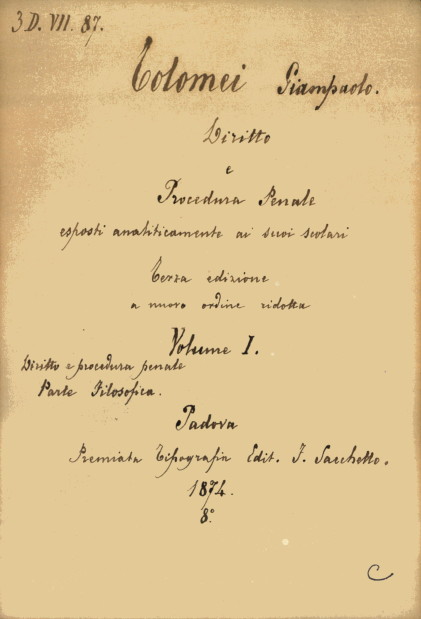 3 D. VII. 87.
Tolomei Giampaolo.
Diritto
e
Procedura Penale
esposti analiticamente ai suoi scolari
Terza edizione
a nuovo ordine ridotta
Volume I.
Diritto e procedura penale
Parte Filosofica.
Padova
Premiata Tipografia Edit. F. Sacchetto.
1874.
8.°
C